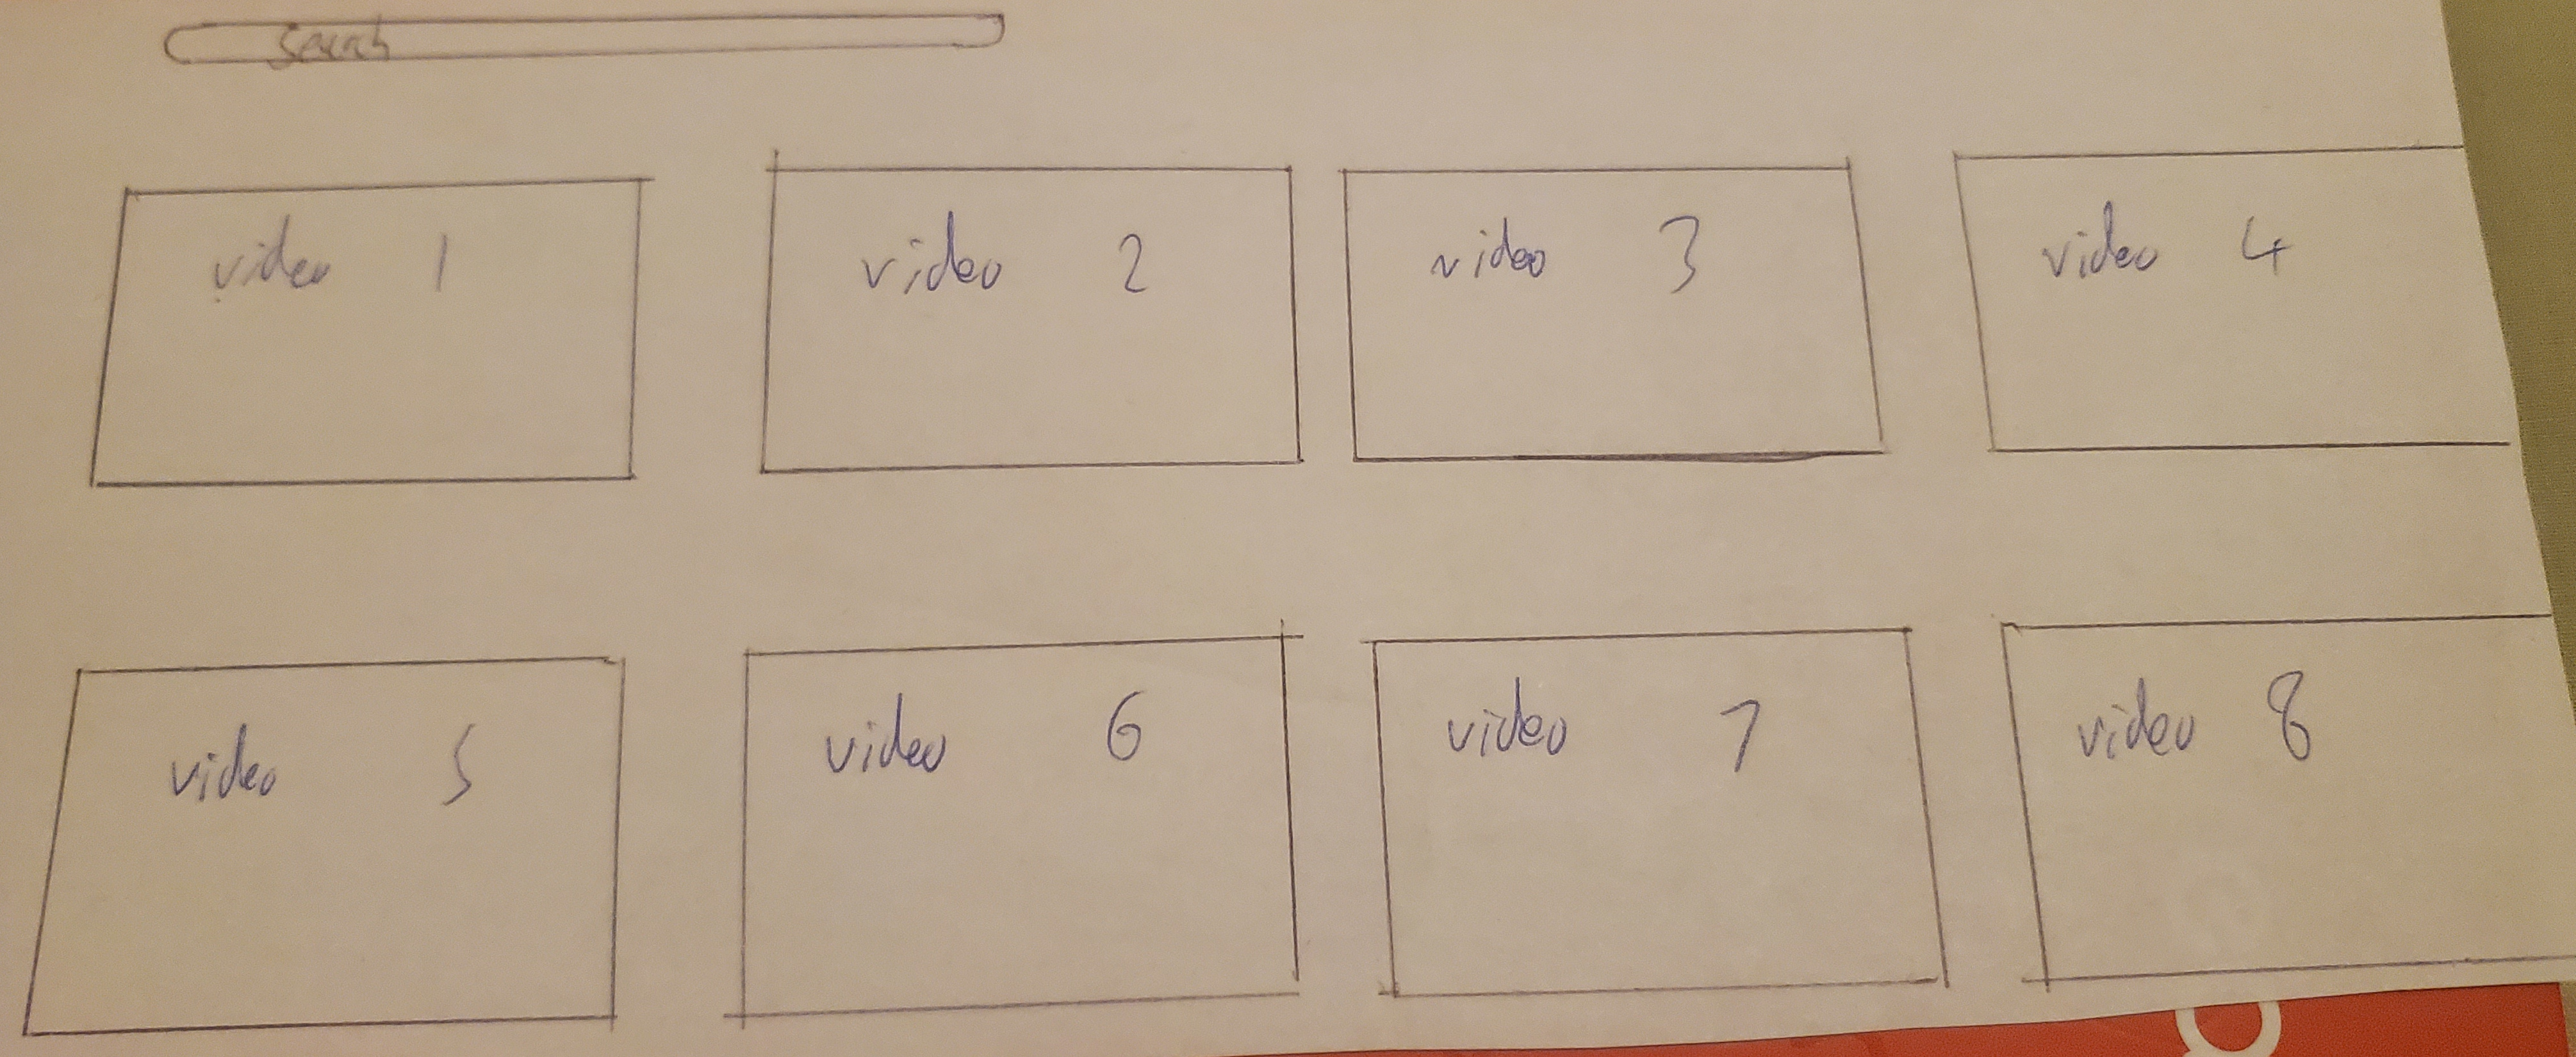 Search
video 1
video 2
video 3
video 4
video 5
video 6
video 7
video 8